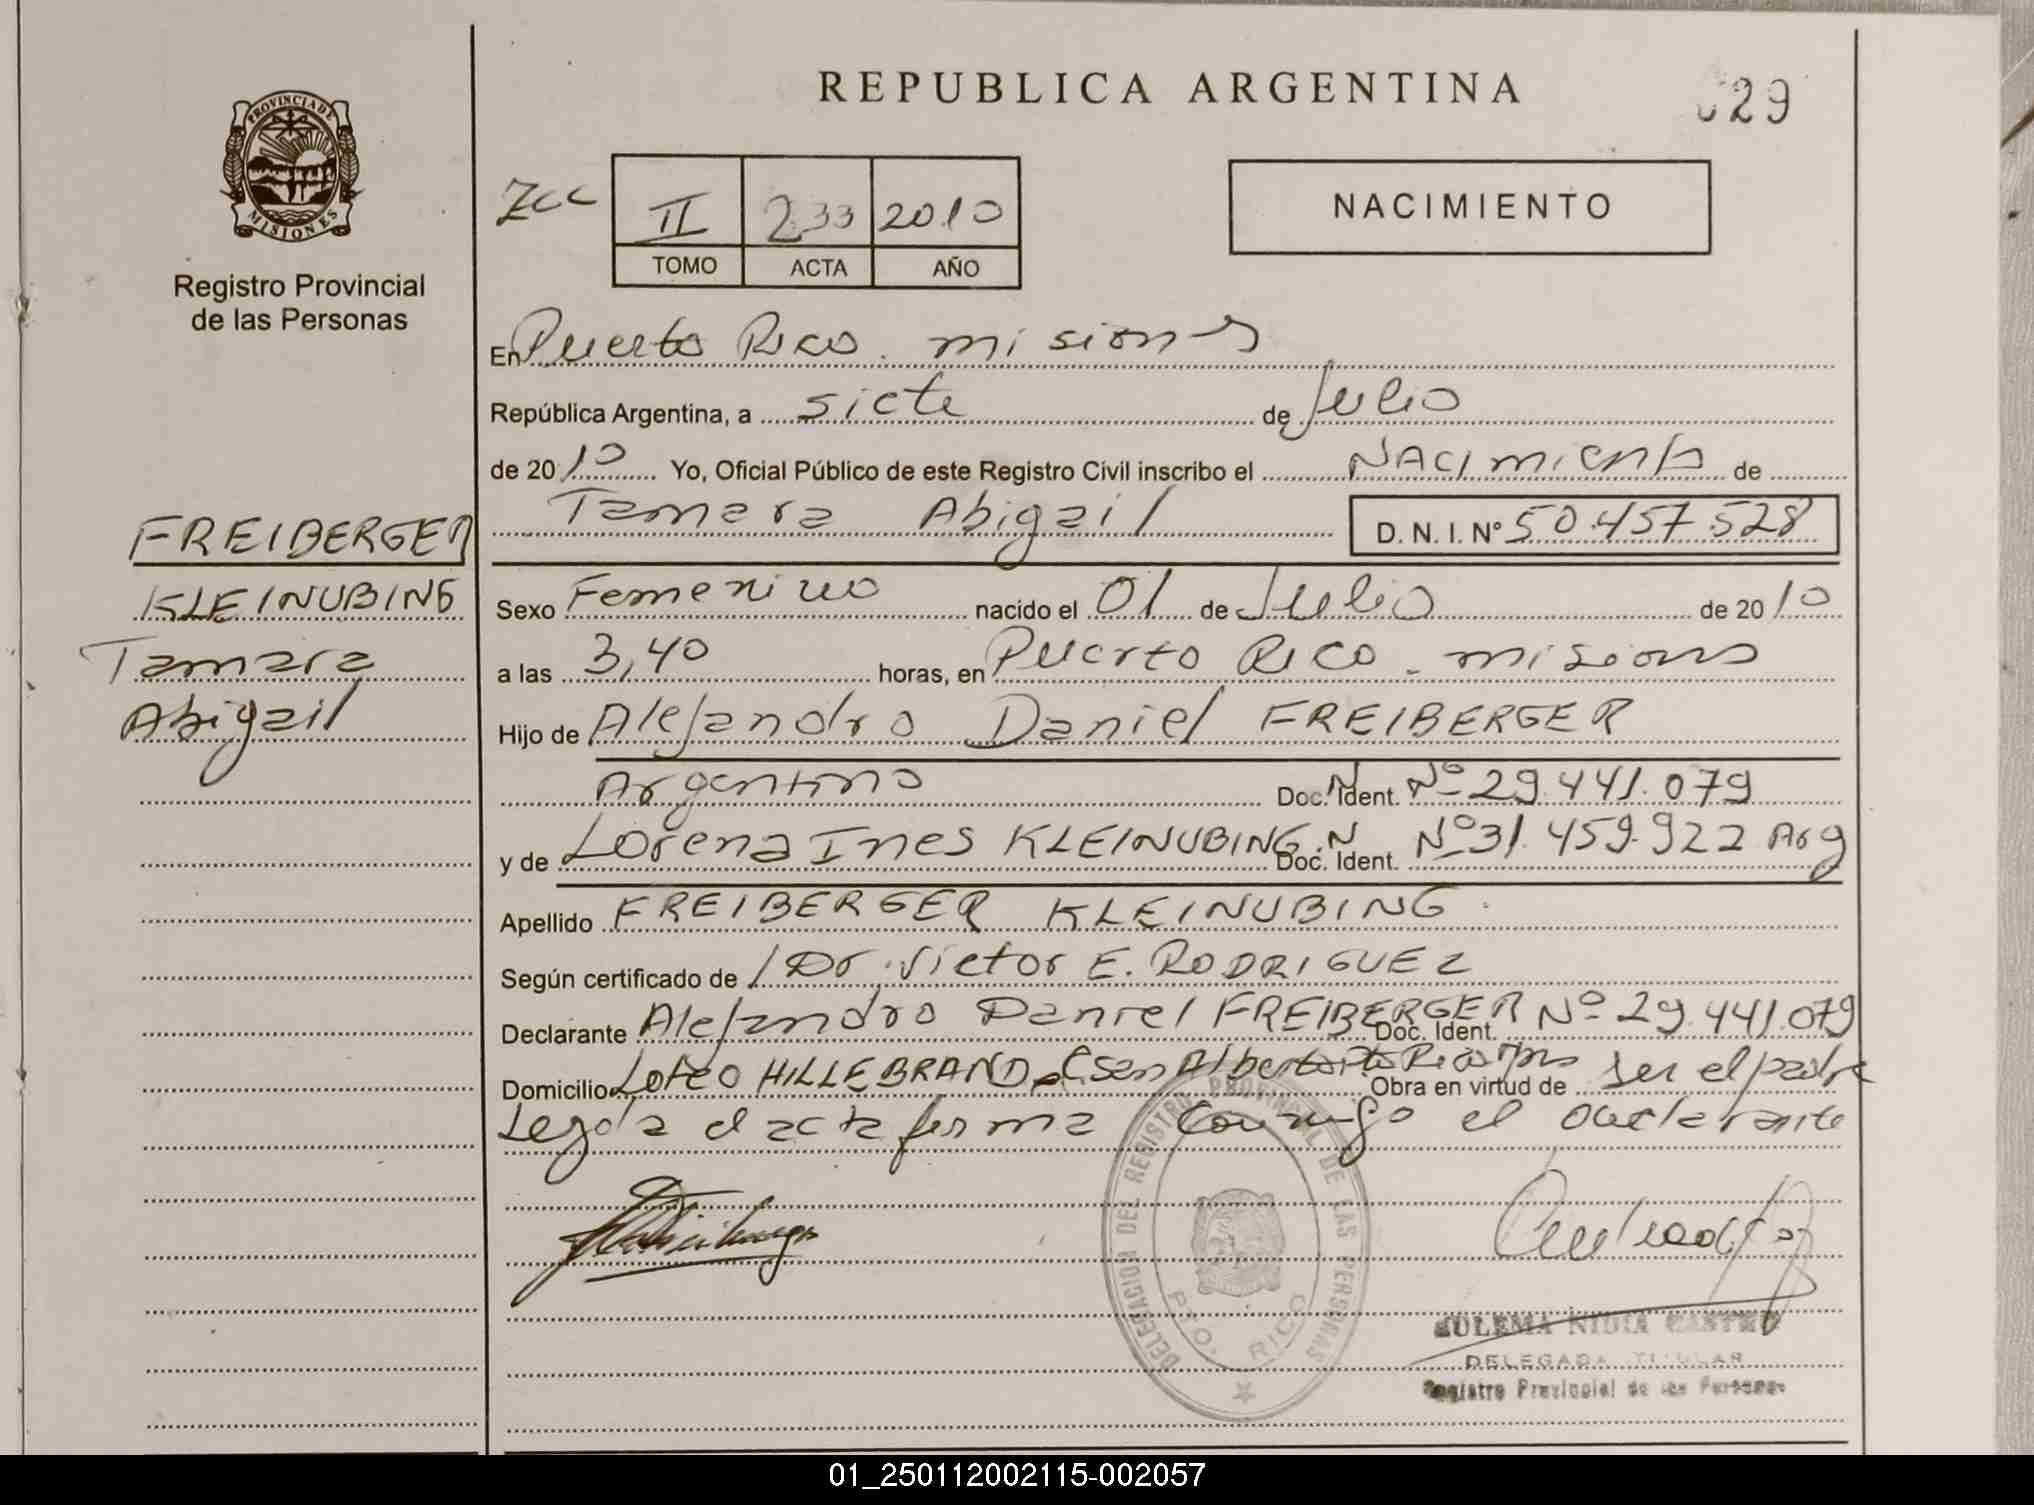 REPUBLICA ARGENTINA
29
PROVINCIA DE
MISIONES
Registro Provincial
de las Personas
II 233 2010
TOMO ACTA AÑO
NACIMIENTO
En Puerto Rico. misiones
República Argentina, a siete de Julio
de 2010 Yo, Oficial Público de este Registro Civil inscribo el Nacimiento de
Tamara Abigail D. N. I. Nº 50.457.528
FREIBERGER
KLEINUBING
Tamara
Abigail
Sexo Femenino nacido el 01 de Julio de 2010
a las 3,40 horas, en Puerto Rico. misiones
Hijo de Alejandro Daniel FREIBERGER
Argentino Doc. N Ident. Nº 29.441.079
y de Lorena Ines KLEINUBING Doc. N Ident. Nº 31.459.922 Arg
Apellido FREIBERGER KLEINUBING.
Según certificado de Dr. Victor E. RODRIGUEZ
Declarante Alejandro Daniel FREIBERGER Doc. Ident. Nº 29.441.079
Domicilio Loteo HILLEBRAND San Alberto Pto Rico Mns Obra en virtud de ser el padre
Legda el acta firma conmigo el declarante
DELEGACION DEL REGISTRO PROVINCIAL DE LAS PERSONAS
PTO. RICO
ZULEMA NIDIA CASTRO
DELEGADA TITULAR
Registro Provincial de las Personas
01_250112002115-002057